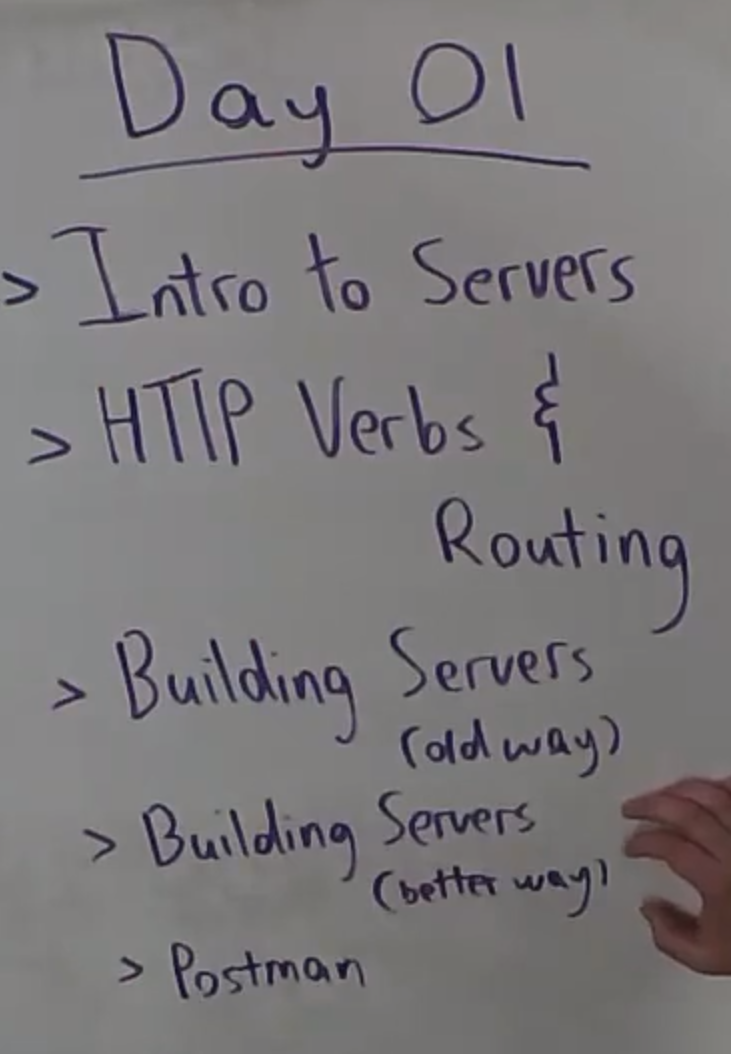 Day 01
> Intro to Servers
> HTTP Verbs &
Routing
> Building Servers
(old way)
> Building Servers
(better way)
> Postman